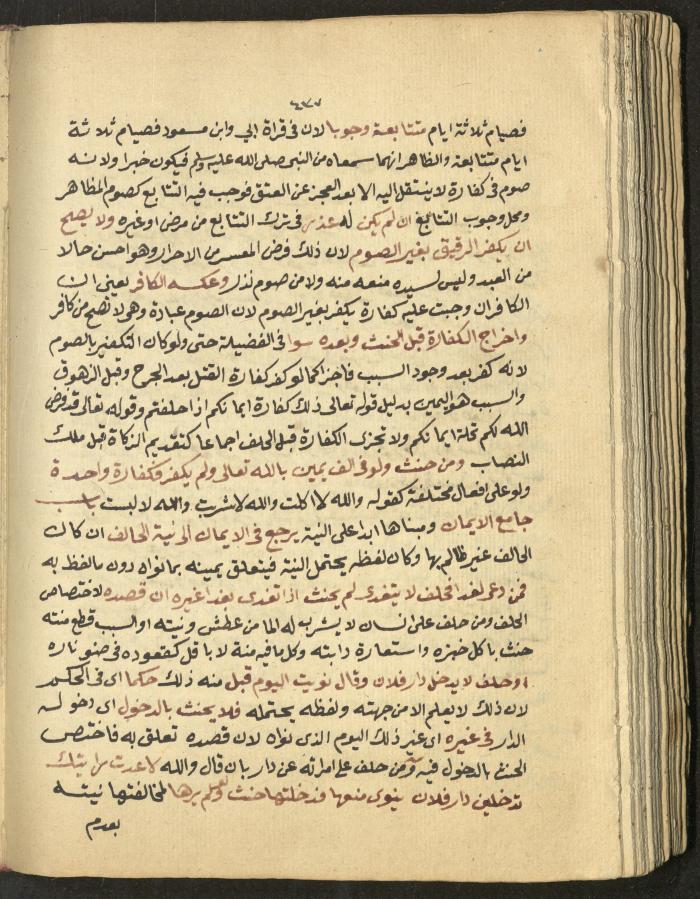 ٦٣٧
فصيام ثلاثة ايام متتابعة وجوبا لان في قراة ابي وابن مسعود فصيام ثلاثة
ايام متتابعة والظاهر انهما سمعاه من النبي صلى الله عليه وسلم فيكون خبرا ولانه
صوم في كفارة لا ينتقل اليه الا بعد العجز عن العتق فوجب فيه التتابع كصوم المظاهر
ومحل وجوب التتابع ان لم يكن له عذر في ترك التتابع من مرض او غيره ولا يصح
ان يكفر الرقيق بغير الصوم لان ذلك فرض المعسر من الاحرار وهو احسن حالا
من العبد وليس لسيده منعه منه ولا من صوم نذر وعكسه الكافر يعني ان
الكافر ان وجبت عليه كفارة يكفر بغير الصوم لان الصوم عبادة وهو لا تصح من كافر
واخراج الكفارة قبل الحنث وبعده سوا في الفضيلة حتى ولو كان التكفير بالصوم
لانه كفر بعد وجود السبب فاجزا كما لو كفر كفارة القتل بعد الجرح وقبل الزهوق
والسبب هو اليمين بدليل قوله تعالى ذلك كفارة ايمانكم اذا حلفتم وقوله تعالى قد فرض
الله لكم تحلة ايمانكم ولا تجزى الكفارة قبل الحلف اجماعا كتقديم الزكاة قبل ملك
النصاب ومن حنث ولو في الف يمين بالله تعالى ولم يكفر فكفارة واحدة
ولو على افعال مختلفة كقوله والله لا اكلت والله لا شربت والله لا لبست باب
جامع الايمان ومبناها ابدا على النية يرجع في الايمان الى نية الحالف ان كان
الحالف غير ظالم بها وكان لفظه يحتمل النية فيتعلق يمينه بما نواه دون ما لفظ به
فمن دعى لغدا فحلف لا يتغدى لم يحنث اذا تغدى بغدا غيره ان قصده لاختصاص
الحلف ومن حلف على انسان لا يشرب له الما من عطش ونيته او السبب قطع منته
حنث باكل خبزه واستعارة دابته وكل ما فيه منة لا باقل كقعوده في ضو ناره
او حلف لا يدخل دار فلان وقال نويت اليوم قبل منه ذلك حكما اى في الحكم
لان ذلك لا يعلم الا من جهته ولفظه يحتمله فلا يحنث بالدخول اى دخول
الدار في غيره اى غير ذلك اليوم الذى نواه لان قصده تعلق به فاختص
الحنث بالدخول فيه ومن حلف على امراته عن دار بان قال والله لا عدت رايتك
تدخلين دار فلان ينوى منعها فدخلتها حنث ولو لم يرها لمخالفتها نيته
بعدم